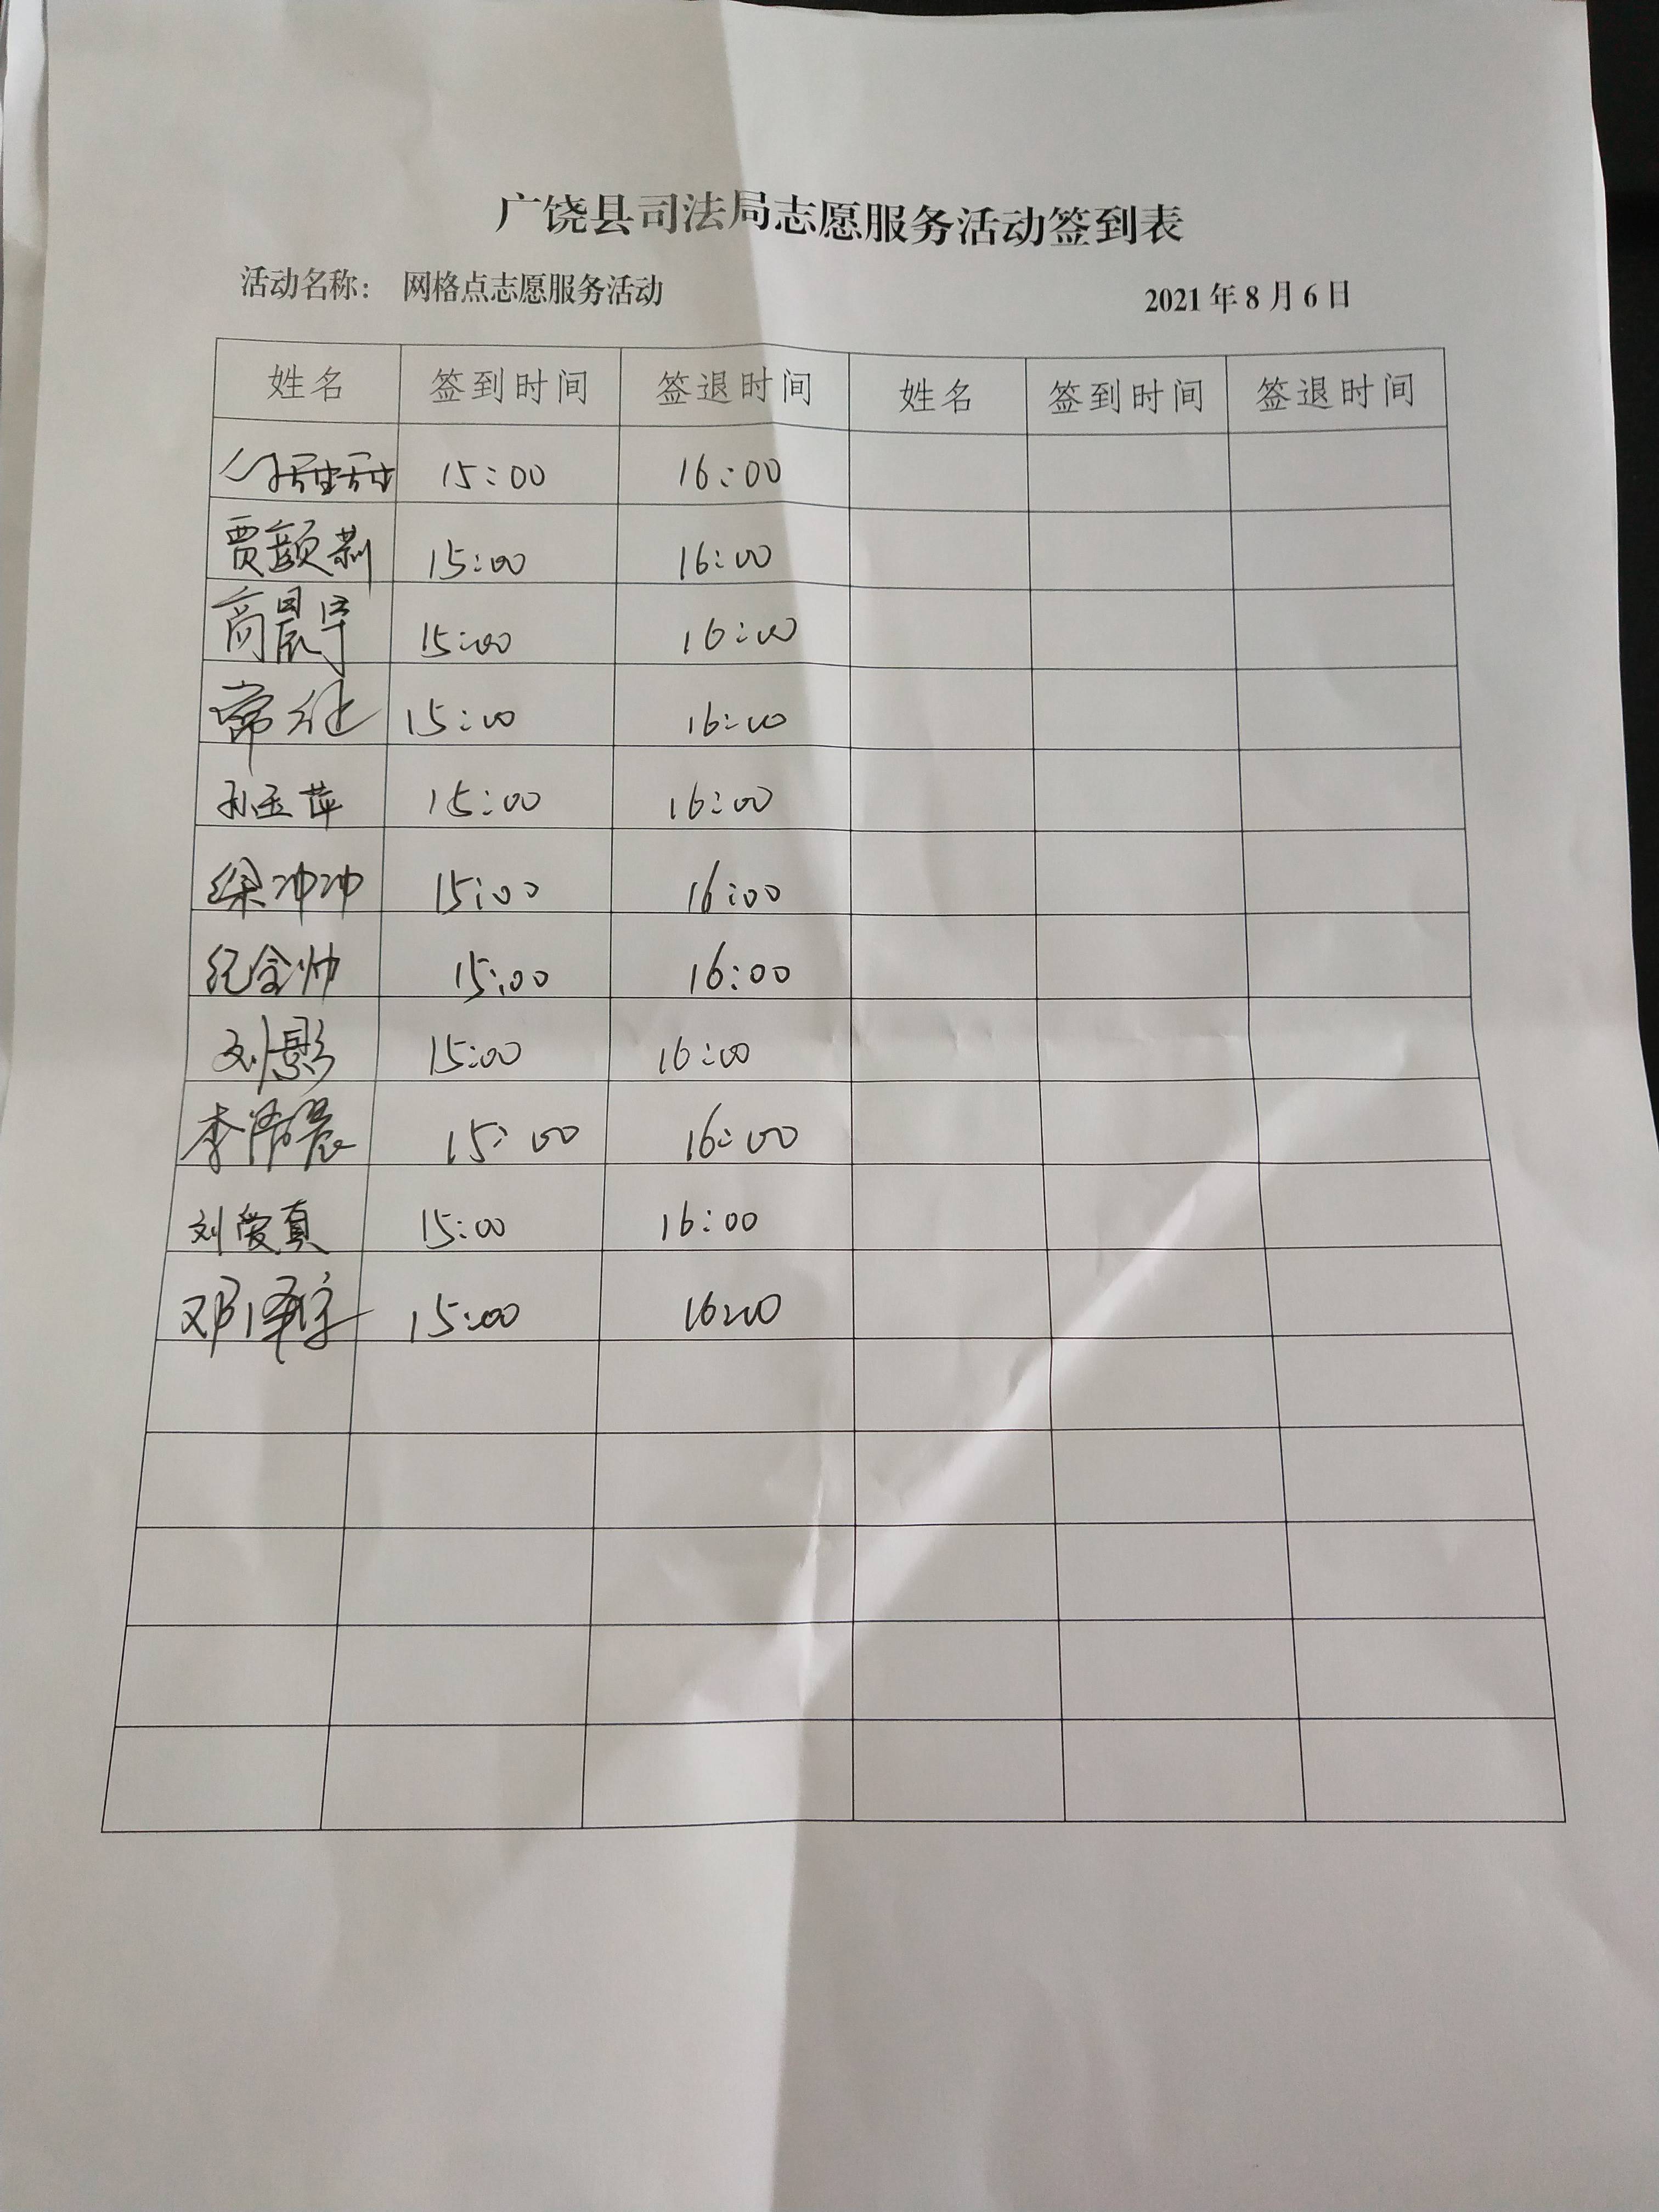 广饶县司法局志愿服务活动签到表
活动名称： 网格点志愿服务活动 2021年8月6日
姓名 签到时间 签退时间 姓名 签到时间 签退时间
15:00 16:00
贾颜 15:00 16:00
商晨宇 15:00 16:00
常 15:00 16:00
孙玉萍 15:00 16:00
梁冲冲 15:00 16:00
纪金帅 15:00 16:00
刘影 15:00 16:00
李 晨 15:00 16:00
刘爱真 15:00 16:00
邓泽宇 15:00 16:00